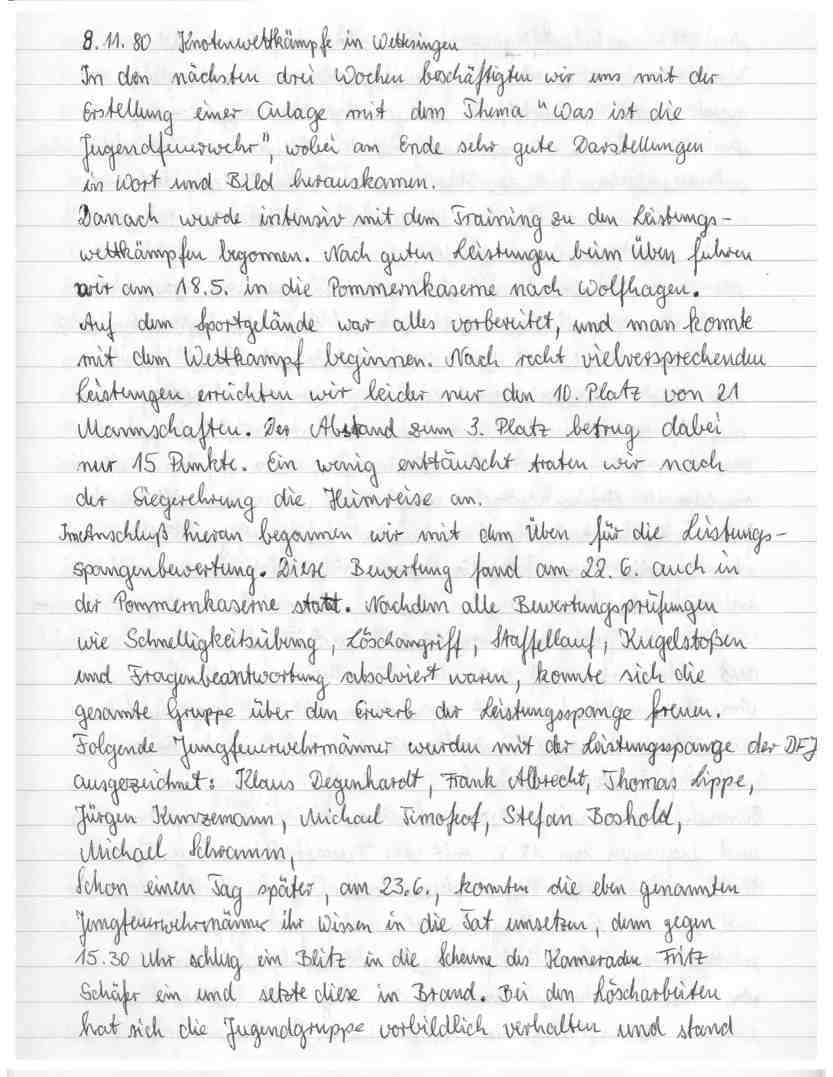 8.11.80 Knotenwettkämpfe in Wettesingen
In den nächsten drei Wochen beschäftigten wir uns mit der
Erstellung einer Anlage mit dem Thema "Was ist die
Jugendfeuerwehr", wobei am Ende sehr gute Darstellungen
in Wort und Bild herauskamen.
Danach wurde intensiv mit dem Training zu den Leistungs-
wettkämpfen begonnen. Nach guten Leistungen beim Üben fuhren
wir am 18.5. in die Pommernkaserne nach Wolfhagen.
Auf dem Sportgelände war alles vorbereitet, und man konnte
mit dem Wettkampf beginnen. Nach recht vielversprechenden
Leistungen erreichten wir leider nur den 10. Platz von 21
Mannschaften. Der Abstand zum 3. Platz betrug dabei
nur 15 Punkte. Ein wenig enttäuscht traten wir nach
der Siegerehrung die Heimreise an.
Im Anschluß hieran begannen wir mit dem Üben für die Leistungs-
spangenbewertung. Diese Bewertung fand am 22.6. auch in
der Pommernkaserne statt. Nachdem alle Bewertungsprüfungen
wie Schnelligkeitsübung, Löschangriff, Staffellauf, Kugelstoßen
und Fragenbeantwortung absolviert waren, konnte sich die
gesamte Gruppe über den Erwerb der Leistungsspange freuen.
Folgende Jungfeuerwehrmänner wurden mit der Leistungsspange der DFJ
ausgezeichnet: Klaus Degenhardt, Frank Albrecht, Thomas Lippe,
Jürgen Kunzemann, Michael Timofeof, Stefan Boshold,
Michael Schramm,
Schon einen Tag später, am 23.6., konnten die eben genannten
Jungfeuerwehrmänner ihr Wissen in die Tat umsetzen, denn gegen
15.30 Uhr schlug ein Blitz in die Scheune des Kameraden Fritz
Schäfer ein und setzte diese in Brand. Bei den Löscharbeiten
hat sich die Jugendgruppe vorbildlich verhalten und stand